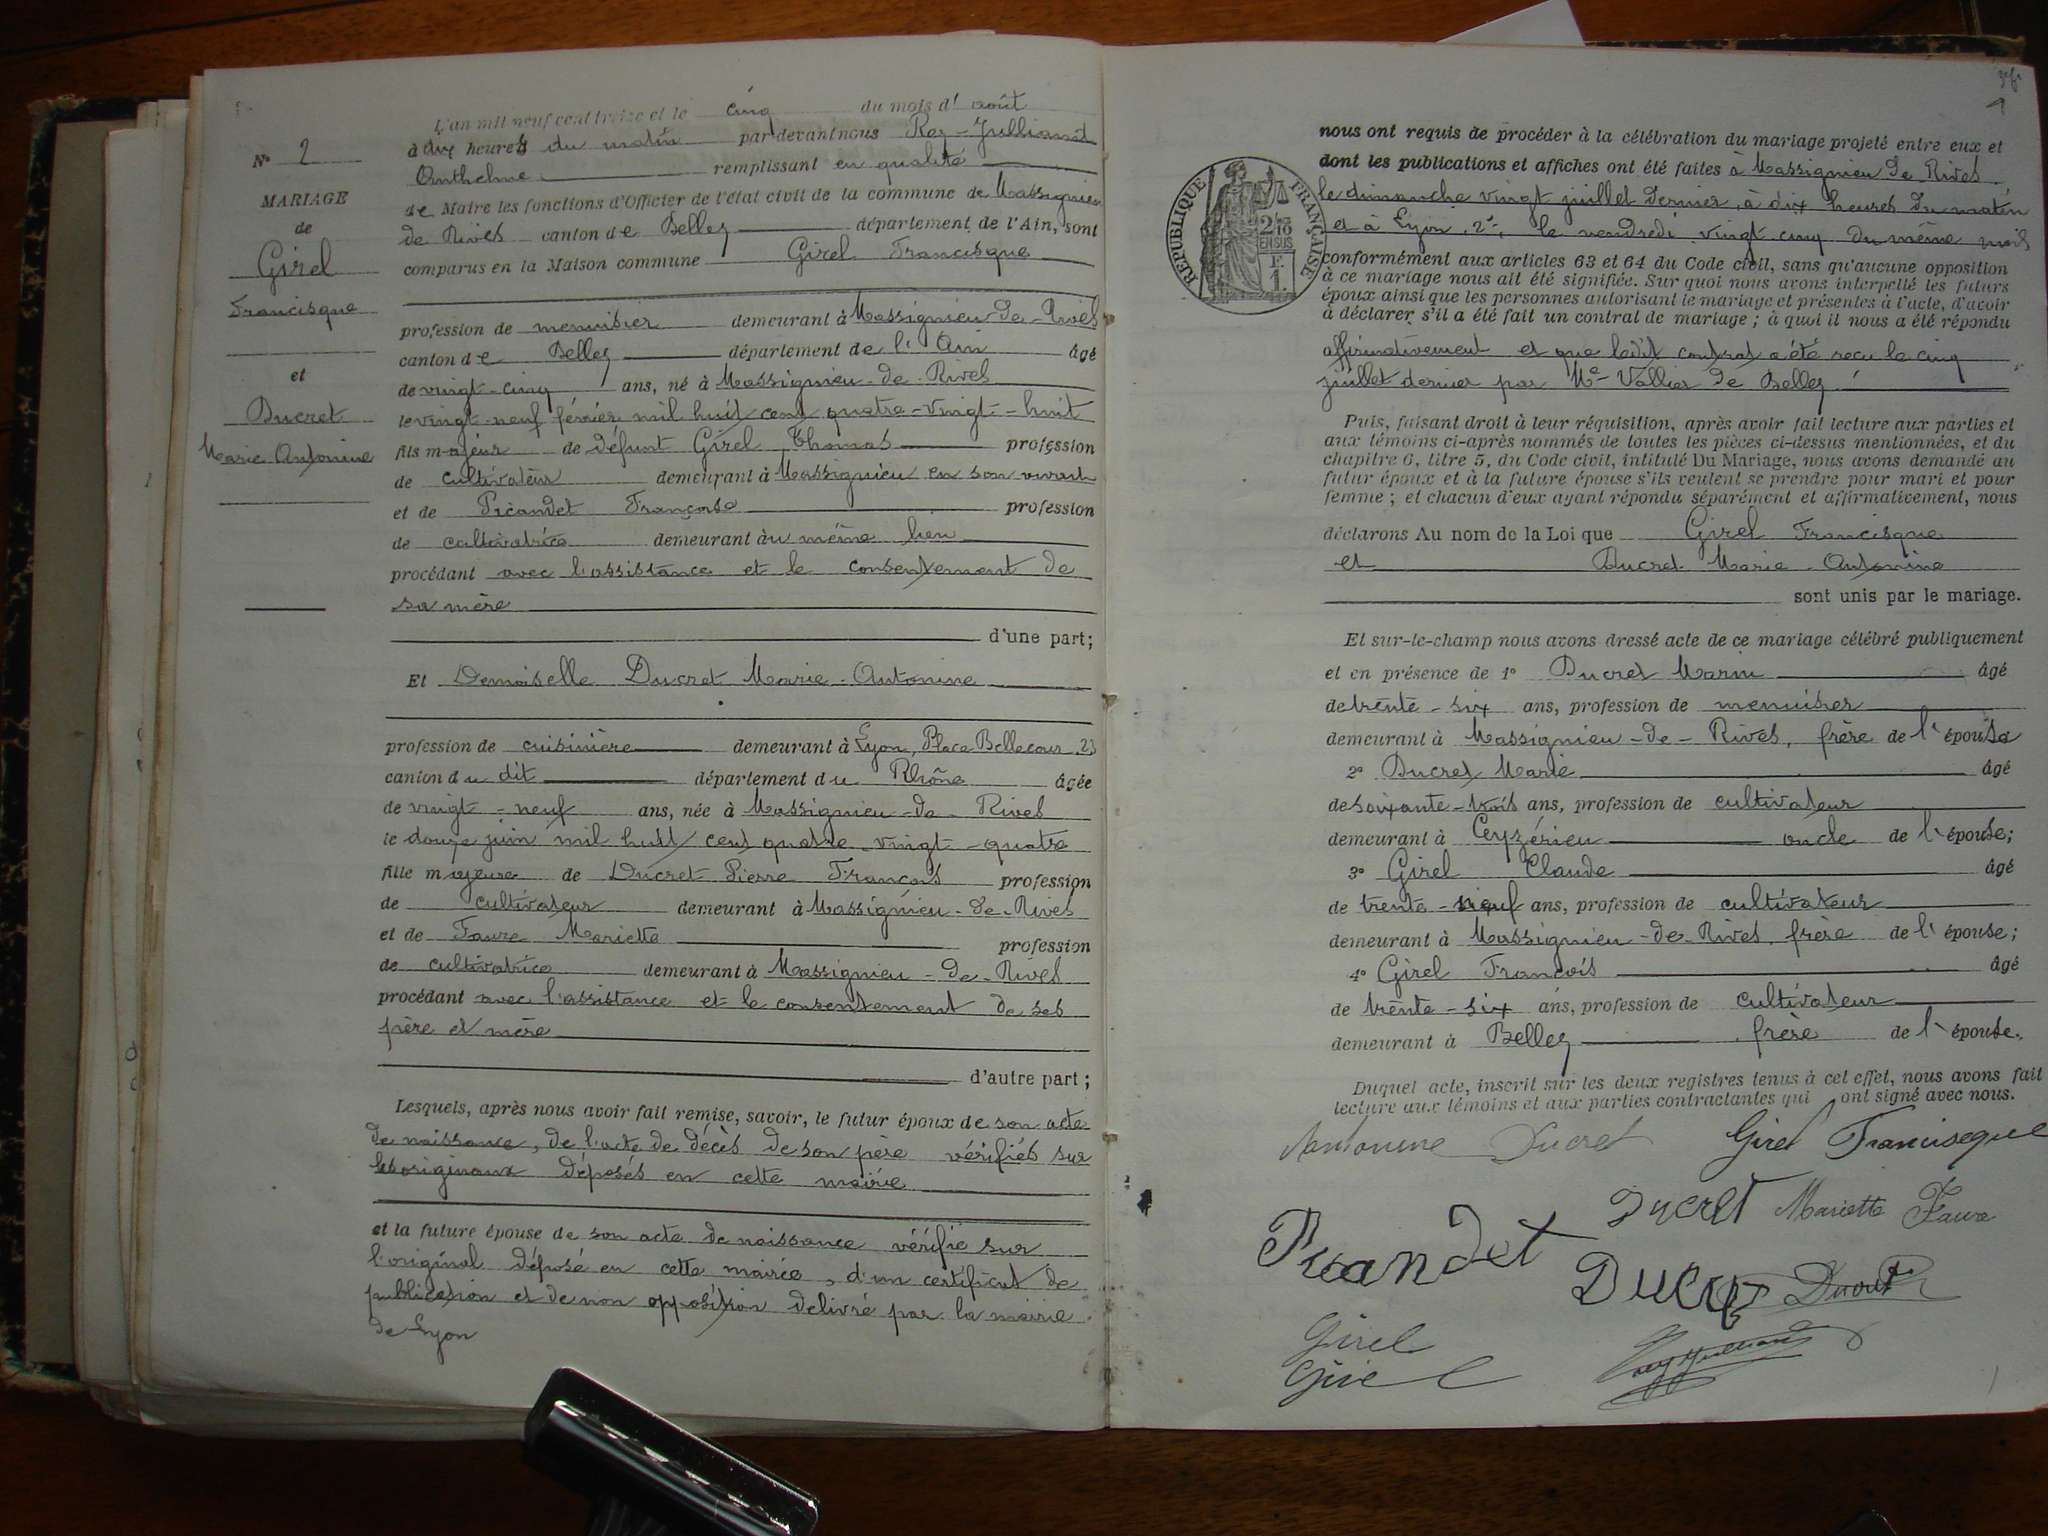 L'an mil neuf cent treize et le cinq du mois d'août
à dix heures du matin par devant nous Rey-Julliand
Anthelme remplissant en qualité
de Maire les fonctions d'Officier de l'état civil de la commune de Massignieu
de Rives canton de Belley département de l'Ain, sont
comparus en la Maison commune Girel Francisque
profession de menuisier demeurant à Massignieu-de-Rives
canton de Belley département de l'Ain âgé
de vingt-cinq ans, né à Massignieu-de-Rives
le vingt-neuf février mil huit cent quatre-vingt-huit
fils majeur de défunt Girel Thomas profession
de cultivateur demeurant à Massignieu en son vivant
et de Picandet Françoise profession
de cultivatrice demeurant au même lieu
procédant avec l'assistance et le consentement de
sa mère
d'une part;
Et Demoiselle Ducret Marie-Antonine
profession de cuisinière demeurant à Lyon, Place Bellecour, 23
canton du dit département du Rhône âgée
de vingt-neuf ans, née à Massignieu-de-Rives
le douze juin mil huit cent quatre-vingt-quatre
fille majeure de Ducret Pierre François profession
de cultivateur demeurant à Massignieu-de-Rives
et de Faure Mariette profession
de cultivatrice demeurant à Massignieu-de-Rives
procédant avec l'assistance et le consentement de ses
père et mère
d'autre part;
Lesquels, après nous avoir fait remise, savoir, le futur époux de son acte
de naissance, de l'acte de décès de son père vérifiés sur
les originaux déposés en cette mairie
et la future épouse de son acte de naissance vérifié sur
l'original déposé en cette mairie, d'un certificat de
publication et de non opposition délivré par la mairie
de Lyon
N° 2
MARIAGE
de
Girel
Francisque
et
Ducret
Marie Antonine
nous ont requis de procéder à la célébration du mariage projeté entre eux et
dont les publications et affiches ont été faites à Massignieu de Rives
le dimanche vingt juillet dernier, à dix heures du matin
et à Lyon, 2e, le vendredi vingt cinq du même mois
conformément aux articles 63 et 64 du Code civil, sans qu'aucune opposition
à ce mariage nous ait été signifiée. Sur quoi nous avons interpellé les futurs
époux ainsi que les personnes autorisant le mariage et présentes à l'acte, d'avoir
à déclarer s'il a été fait un contrat de mariage; à quoi il nous a été répondu
affirmativement et que ledit contrat a été reçu le cinq
juillet dernier par Me Vallier de Belley.
Puis, faisant droit à leur réquisition, après avoir fait lecture aux parties et
aux témoins ci-après nommés de toutes les pièces ci-dessus mentionnées, et du
chapitre 6, titre 5, du Code civil, intitulé Du Mariage, nous avons demandé au
futur époux et à la future épouse s'ils veulent se prendre pour mari et pour
femme; et chacun d'eux ayant répondu séparément et affirmativement, nous
déclarons Au nom de la Loi que Girel Francisque
et Ducret Marie-Antonine
sont unis par le mariage.
Et sur-le-champ nous avons dressé acte de ce mariage célébré publiquement
et en présence de 1° Ducret Marin âgé
de trente-six ans, profession de menuisier
demeurant à Massignieu-de-Rives, frère de l'épouse
2° Ducret Marie âgé
de soixante-trois ans, profession de cultivateur
demeurant à Ceyzérieu oncle de l'épouse;
3° Girel Claude âgé
de trente-neuf ans, profession de cultivateur
demeurant à Massignieu-de-Rives, frère de l'épouse;
4° Girel François âgé
de trente-six ans, profession de cultivateur
demeurant à Belley frère de l'épouse.
Duquel acte, inscrit sur les deux registres tenus à cet effet, nous avons fait
lecture aux témoins et aux parties contractantes qui ont signé avec nous.
Antonine Ducret Girel Francisque
Picandet Ducret Mariette Faure
Ducret Ducret
Girel
Girel Rey Julliand
RÉPUBLIQUE FRANÇAISE
2/10
EN SUS
F.
1.